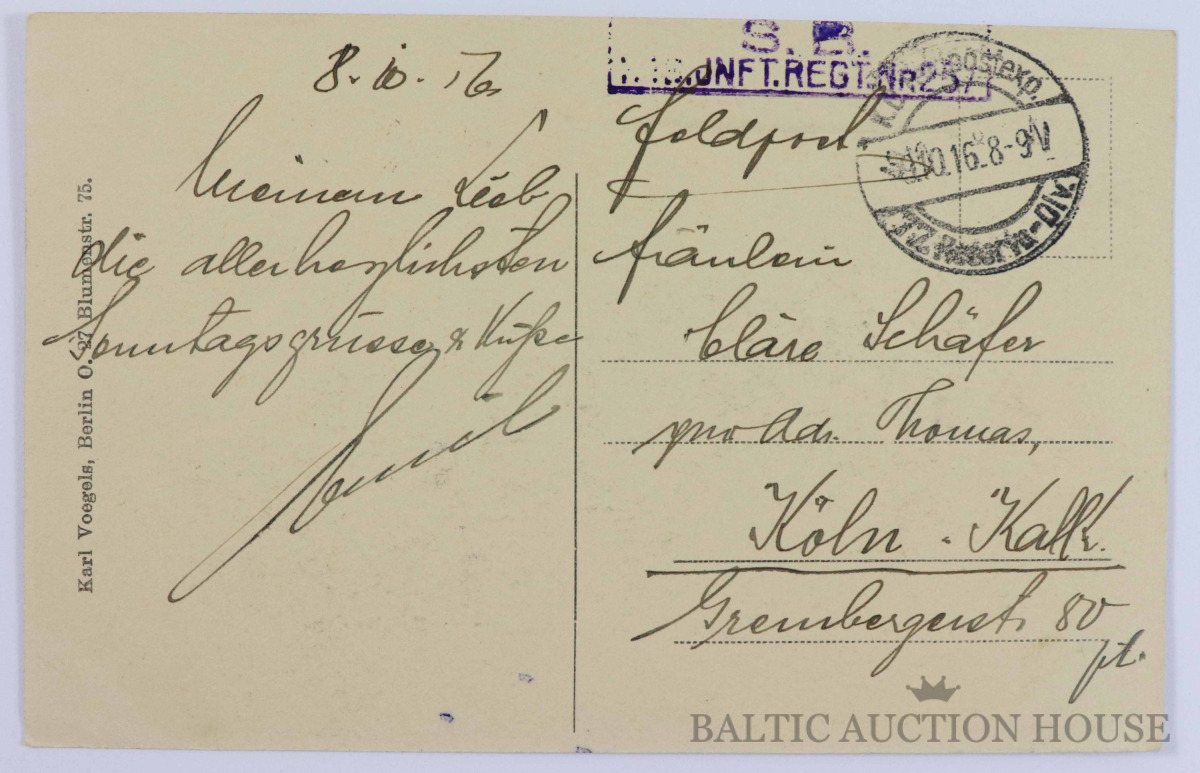 8. 10. 16.
Meinem Lieb
die allerherzlichsten
Sonntagsgrüsse & Küsse
Emil
Karl Voegels, Berlin O. 27 Blumenstr. 75.
S. B.
INFT. REGT. Nr 257
Feldpost
9.10.16. 8-9 V
Reserve-Div.
Fräulein
Cläre Schäfer
pro Adr. Thomas,
Köln - Kalk.
Grembergerstr. 80
pt.
BALTIC AUCTION HOUSE